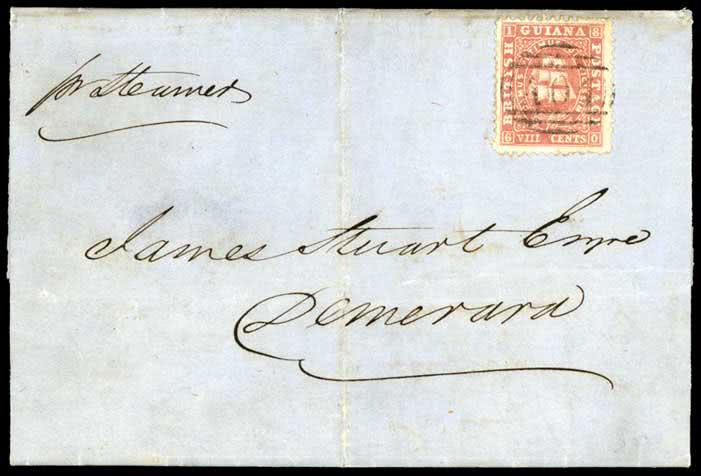 pr Steamer
1 GUIANA 8
BRITISH
POSTAGE
6 VIII CENTS 0
James Stuart Esqre
Demerara